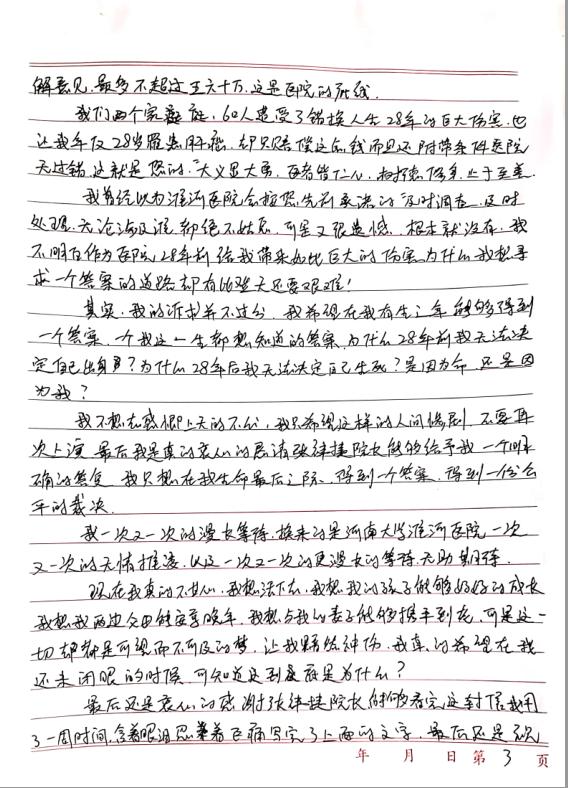 解意见，最多不超过五六十万，这是医院的底线。
我们两个家庭，60人遭受了错换人生28年的巨大伤害，也
让我年仅28岁罹患肝癌，却只赔偿这点钱而且还附带条件医院
无过错，这就是您的"大义显大勇，百者皆仁人，树德修身，止于至善。
我曾经以为淮河医院会按您先前承诺的及时调查，及时
处理，无论涉及谁，都绝不姑息，可是又很遗憾，根本就没有，我
不明白作为医院，28年前给我带来如此巨大的伤害，为什么我想寻
求一个答案的道路却有比登天还要艰难！
其实，我的诉求并不过分，我希望在我有生之年能够得到
一个答案，一个我这一生都想知道的答案，为什么28年前我无法决
定自己出身？为什么28年后我无法决定自己生死？是因为命，还是因
为我？
我不想在感慨上天的不公，我只希望这样的人间惨剧，不要再
次上演，最后我是真的衷心的恳请张祎捷院长能够给予我一个明
确的答复，我只想在我生命最后之际，得到一个答案，得到一份公
平的裁决。
我一次又一次的漫长等待，换来的是河南大学淮河医院一次
又一次的无情推诿，以及一次又一次的更漫长的等待，无助，期待。
现在我真的不甘心，我想活下去，我想我的孩子能够好好的成长
我想我两边父母能安享晚年，我想与我的妻子能够携手到老，可是这一
切却都是可望而不可及的梦，让我黯然神伤，我真的希望在我
还未闭眼的时候，可知道这到底是为什么？
最后还是衷心的感谢张祎捷院长能够看完这封信我用
了一周时间，含着眼泪忍着巨痛写完了上面的文字，最后还是祝
年 月 日第 3 页